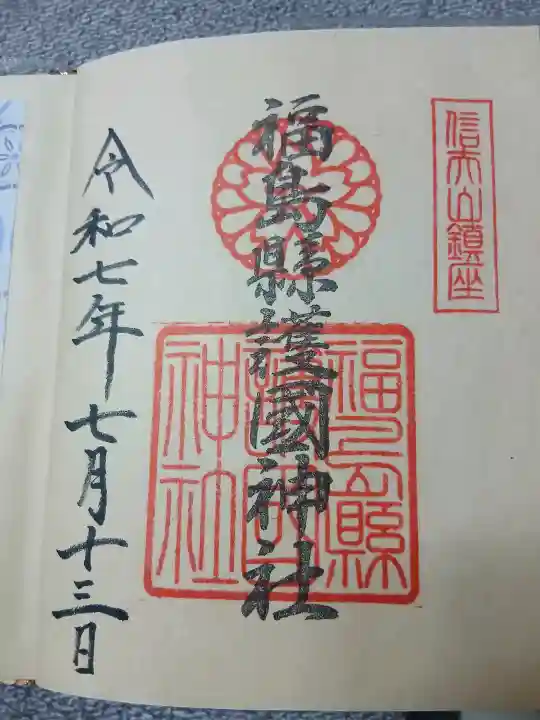 信夫山鎮座
福島縣護國神社
福島縣
護國
神社
令和七年七月十三日